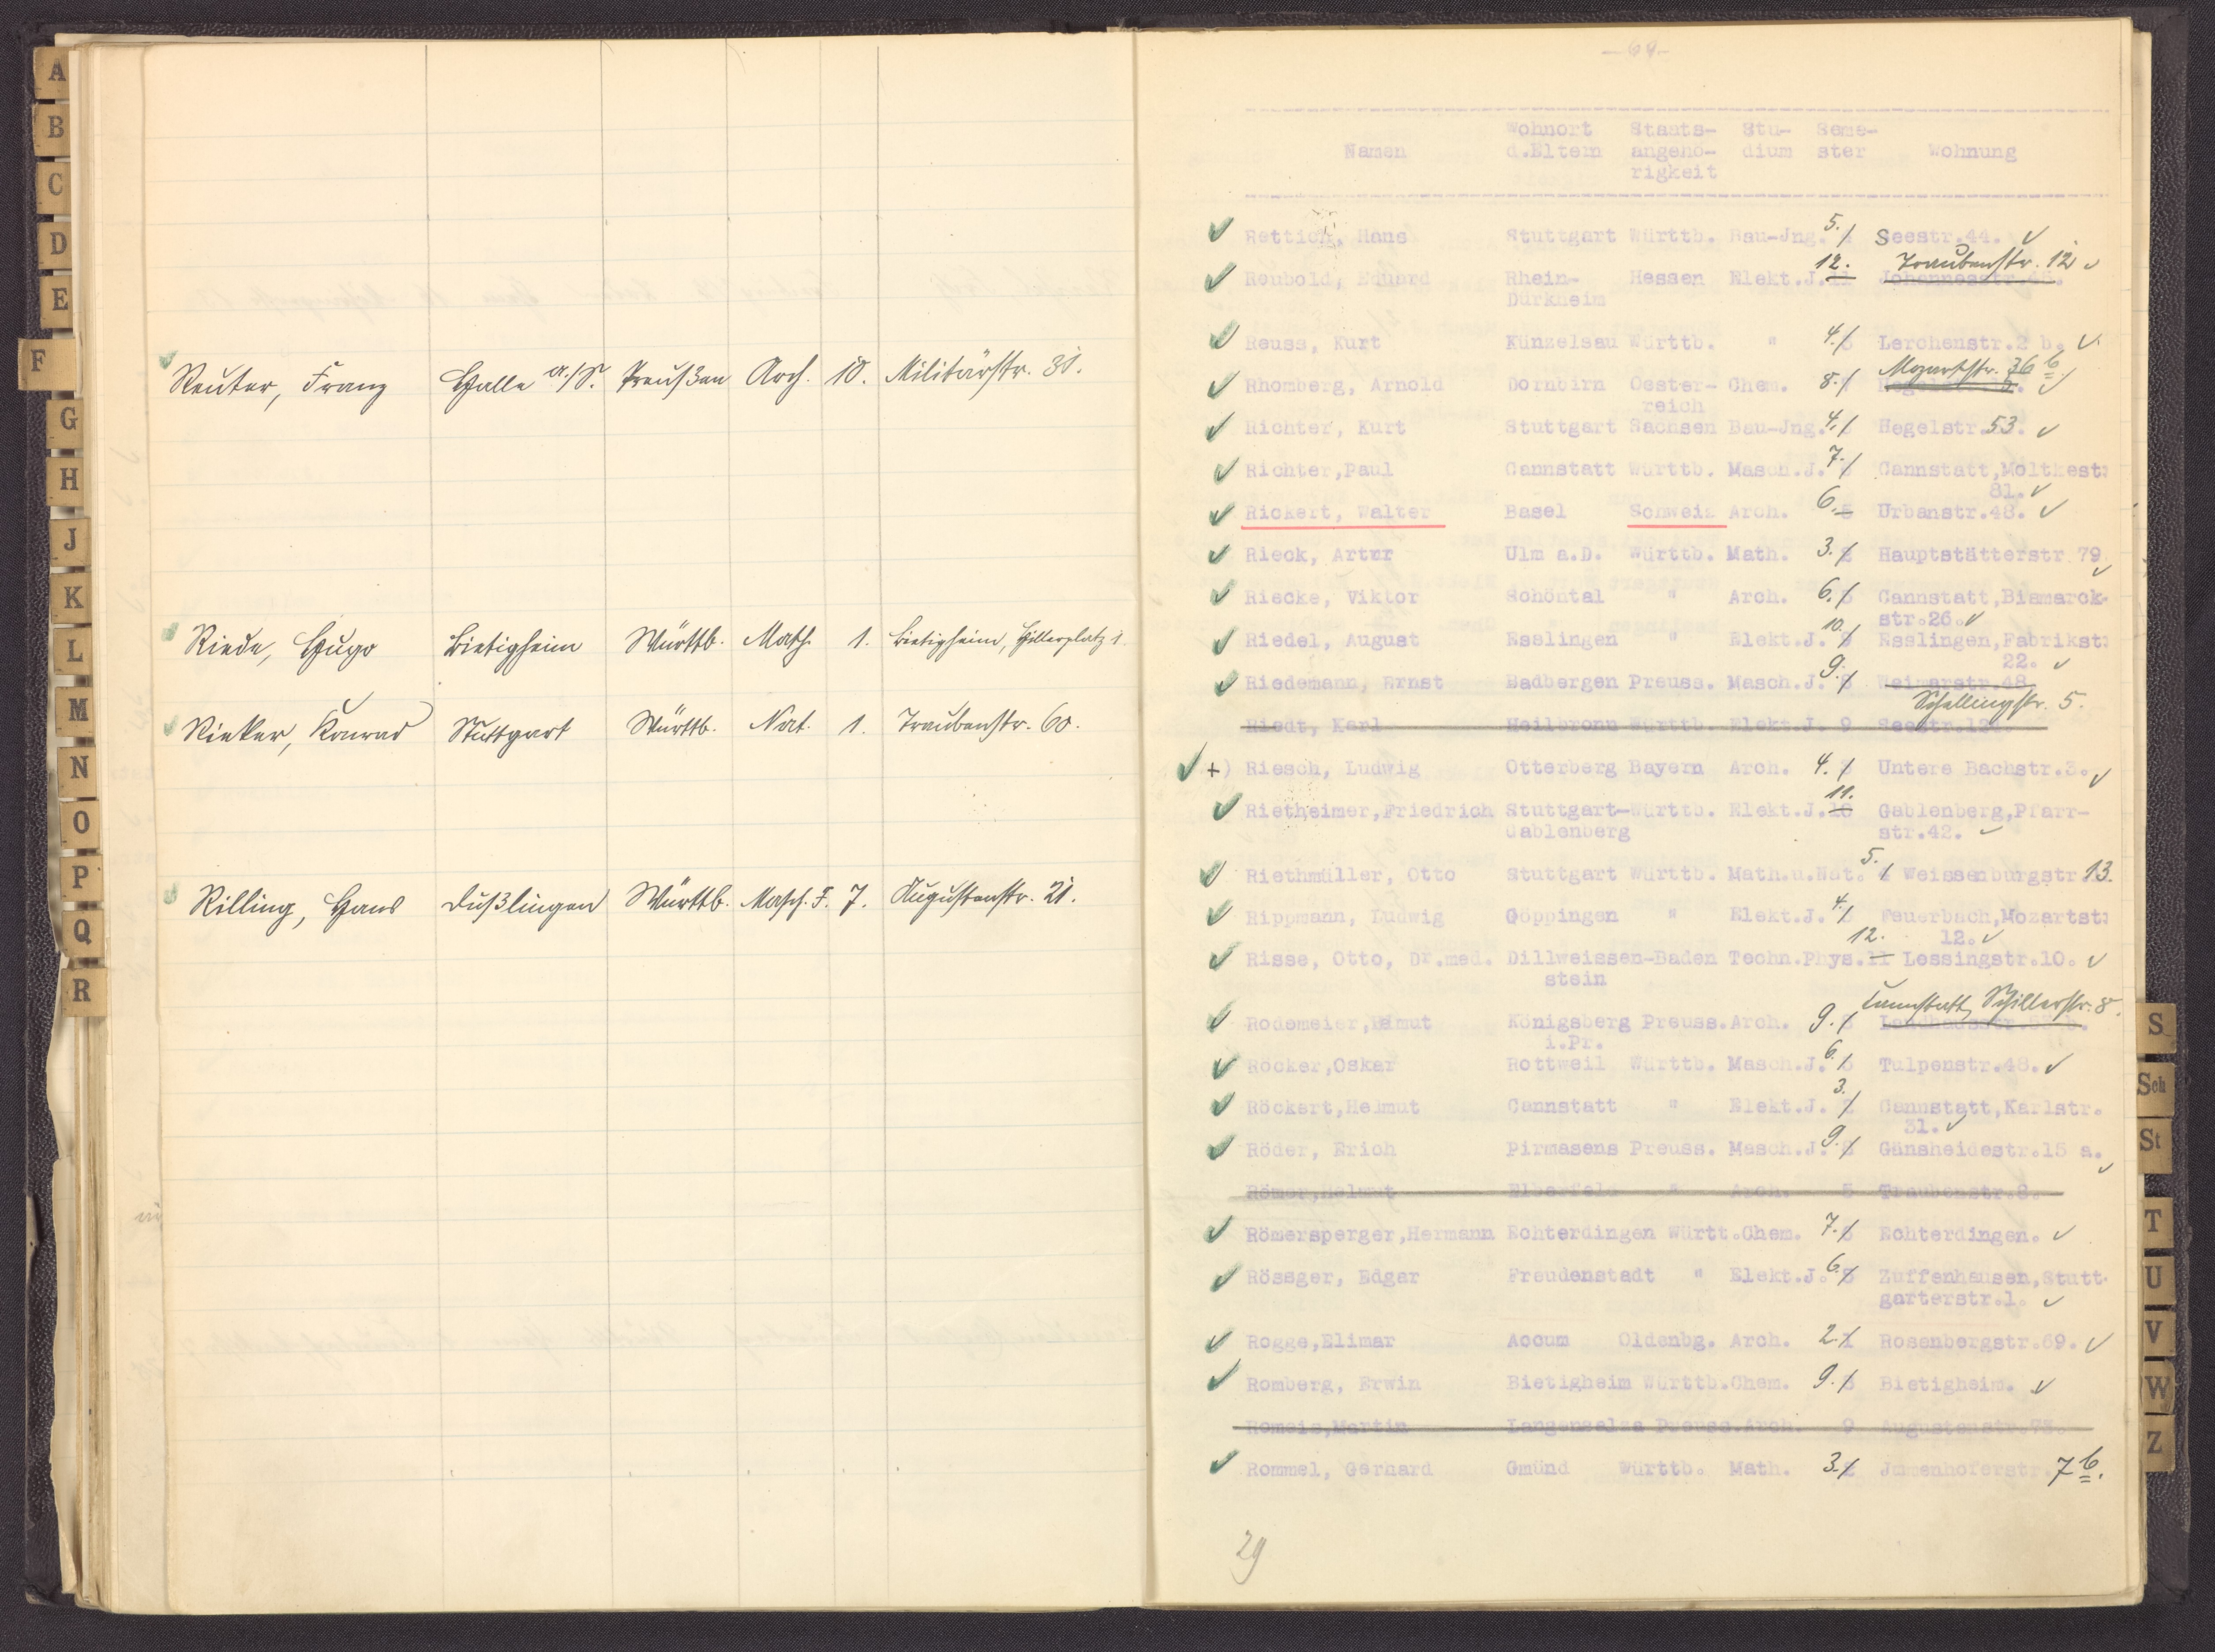 A
B
C
D
E
F
G
H
J
K
L
M
N
O
P
Q
R
Reuter, Franz Halle a./S. Preußen Arch. 10. Militärstr. 31.
Riede, Hugo Bietigheim Württb. Math. 1. Bietigheim, Hillerplatz 1.
Rieker, Konrad Stuttgart Württb. Nat. 1. Traubenstr. 60.
Rilling, Hans Dußlingen Württb. Masch. J. 7. Augustenstr. 21.
-64-
Wohnort Staats- Stu- Seme-
Namen d.Eltern angehö- dium ster Wohnung
rigkeit
Rettich, Hans Stuttgart Württb. Bau-Jng. 5. Seestr.44.
12. Traubenstr. 12
Reubold, Eduard Rhein- Hessen Elekt.J. 11 Johannesstr.
Dürkheim
Reuss, Kurt Künzelsau Württb. " 4. Lerchenstr.2 b.
Mozartstr. 36 b.
Rhomberg, Arnold Dornbirn Oester- Chem. 8.
reich
Richter, Kurt Stuttgart Sachsen Bau-Jng. 4. Hegelstr. 53.
Richter,Paul Cannstatt Württb. Masch.J. 7. Cannstatt,Moltkest
81.
Rickert, Walter Basel Schweiz Arch. 6. 5 Urbanstr.48.
Rieck, Artur Ulm a.D. Württb. Math. 3. 2 Hauptstätterstr 79
Riecke, Viktor Schöntal " Arch. 6. 5 Cannstatt,Bismarck-
str.26.
Riedel, August Esslingen " Elekt.J. 10. Esslingen,Fabrikst
22.
Riedemann, Ernst Badbergen Preuss. Masch.J. 9. 8 Weimarstr.48
Schellingstr. 5.
Riedt, Karl Heilbronn Württb. Elekt.J. 9 Seestr.
+) Riesch, Ludwig Otterberg Bayern Arch. 4. 3 Untere Bachstr.3.
11.
Rietheimer,Friedrich Stuttgart-Württb. Elekt.J. 10 Gablenberg,Pfarr-
Gablenberg str.42.
Riethmüller, Otto Stuttgart Württb. Math.u.Nat. 5. 4 Weissenburgstr 13.
Rippmann, Ludwig Göppingen " Elekt.J. 4. 3 Feuerbach,Mozartst
12. 12.
Risse, Otto, Dr.med. Dillweissen-Baden Techn.Phys. 11 Lessingstr.10.
stein
Cannstatt, Schillerstr. 8.
Rodemeier, Königsberg Preuss.Arch. 9. 8
i.Pr.
Röcker,Oskar Rottweil Württb. Masch.J. 6. 5 Tulpenstr.48.
Röckert,Helmut Cannstatt " Elekt.J. 3. 2 Cannstatt,Karlstr.
31.
Röder, Erich Pirmasens Preuss. Masch.J. 9. 8 Gänsheidestr.15 a.
Römer,Helmut Elberfeld " Arch. 5 Traubenstr.8.
Römersperger,Hermann Echterdingen Württ.Chem. 7. 6 Echterdingen.
Rössger, Edgar Freudenstadt " Elekt.J. 6. Zuffenhausen,Stutt-
garterstr.1.
Rogge,Elimar Accum Oldenbg. Arch. 2. 1 Rosenbergstr.69.
Romberg, Erwin Bietigheim Württb.Chem. 9. 8 Bietigheim.
Romeis,Martin Langensalza Preuss.Arch. 9 Augustenstr.73.
Rommel, Gerhard Gmünd Württb. Math. 3. 2 Immenhoferstr. 7 b.
29
S
Sch
St
T
U
V
W
Z